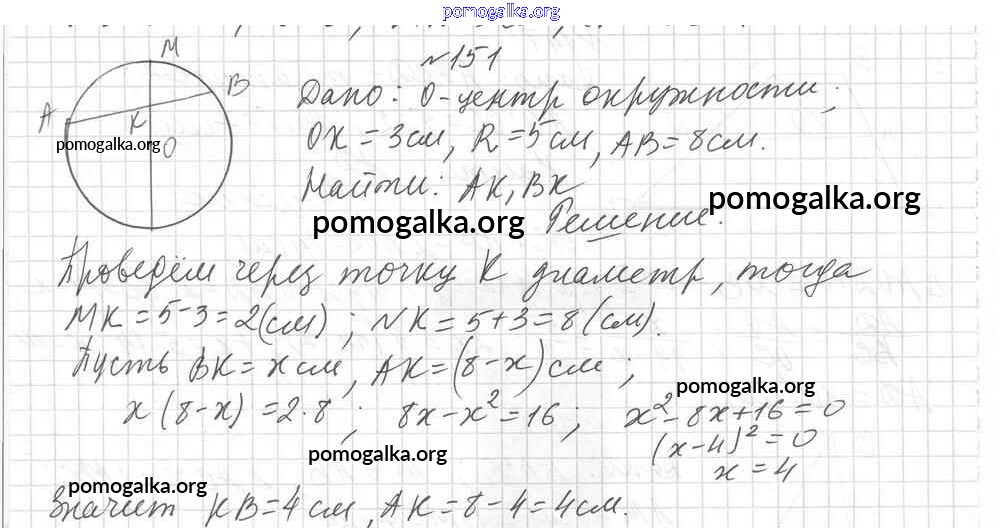 pomogalka.org
№151
M
A
B
K
O
pomogalka.org
Дано: O-центр окружности;
OK = 3см, R = 5см, AB = 8см.
Найти: AK, BK
pomogalka.org
Решение.
pomogalka.org
Проведём через точку K диаметр, тогда
MK = 5-3 = 2(см); NK = 5+3 = 8(см).
Пусть BK = x см, AK = (8-x) см;
pomogalka.org
x(8-x) = 2·8; 8x-x² = 16; x²-8x+16=0
(x-4)² = 0
x = 4
pomogalka.org
pomogalka.org
Значит KB = 4см, AK = 8-4 = 4см.